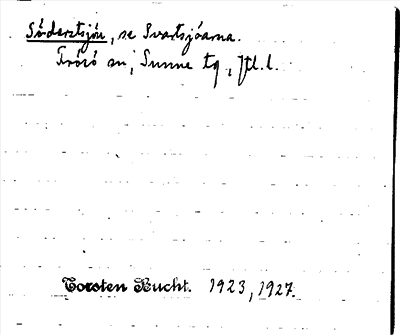 Södersjön, se Svartsjöarna.
Frösö sn, Sunne tg, Jtl.l.
Torsten Bucht. 1923, 1927.